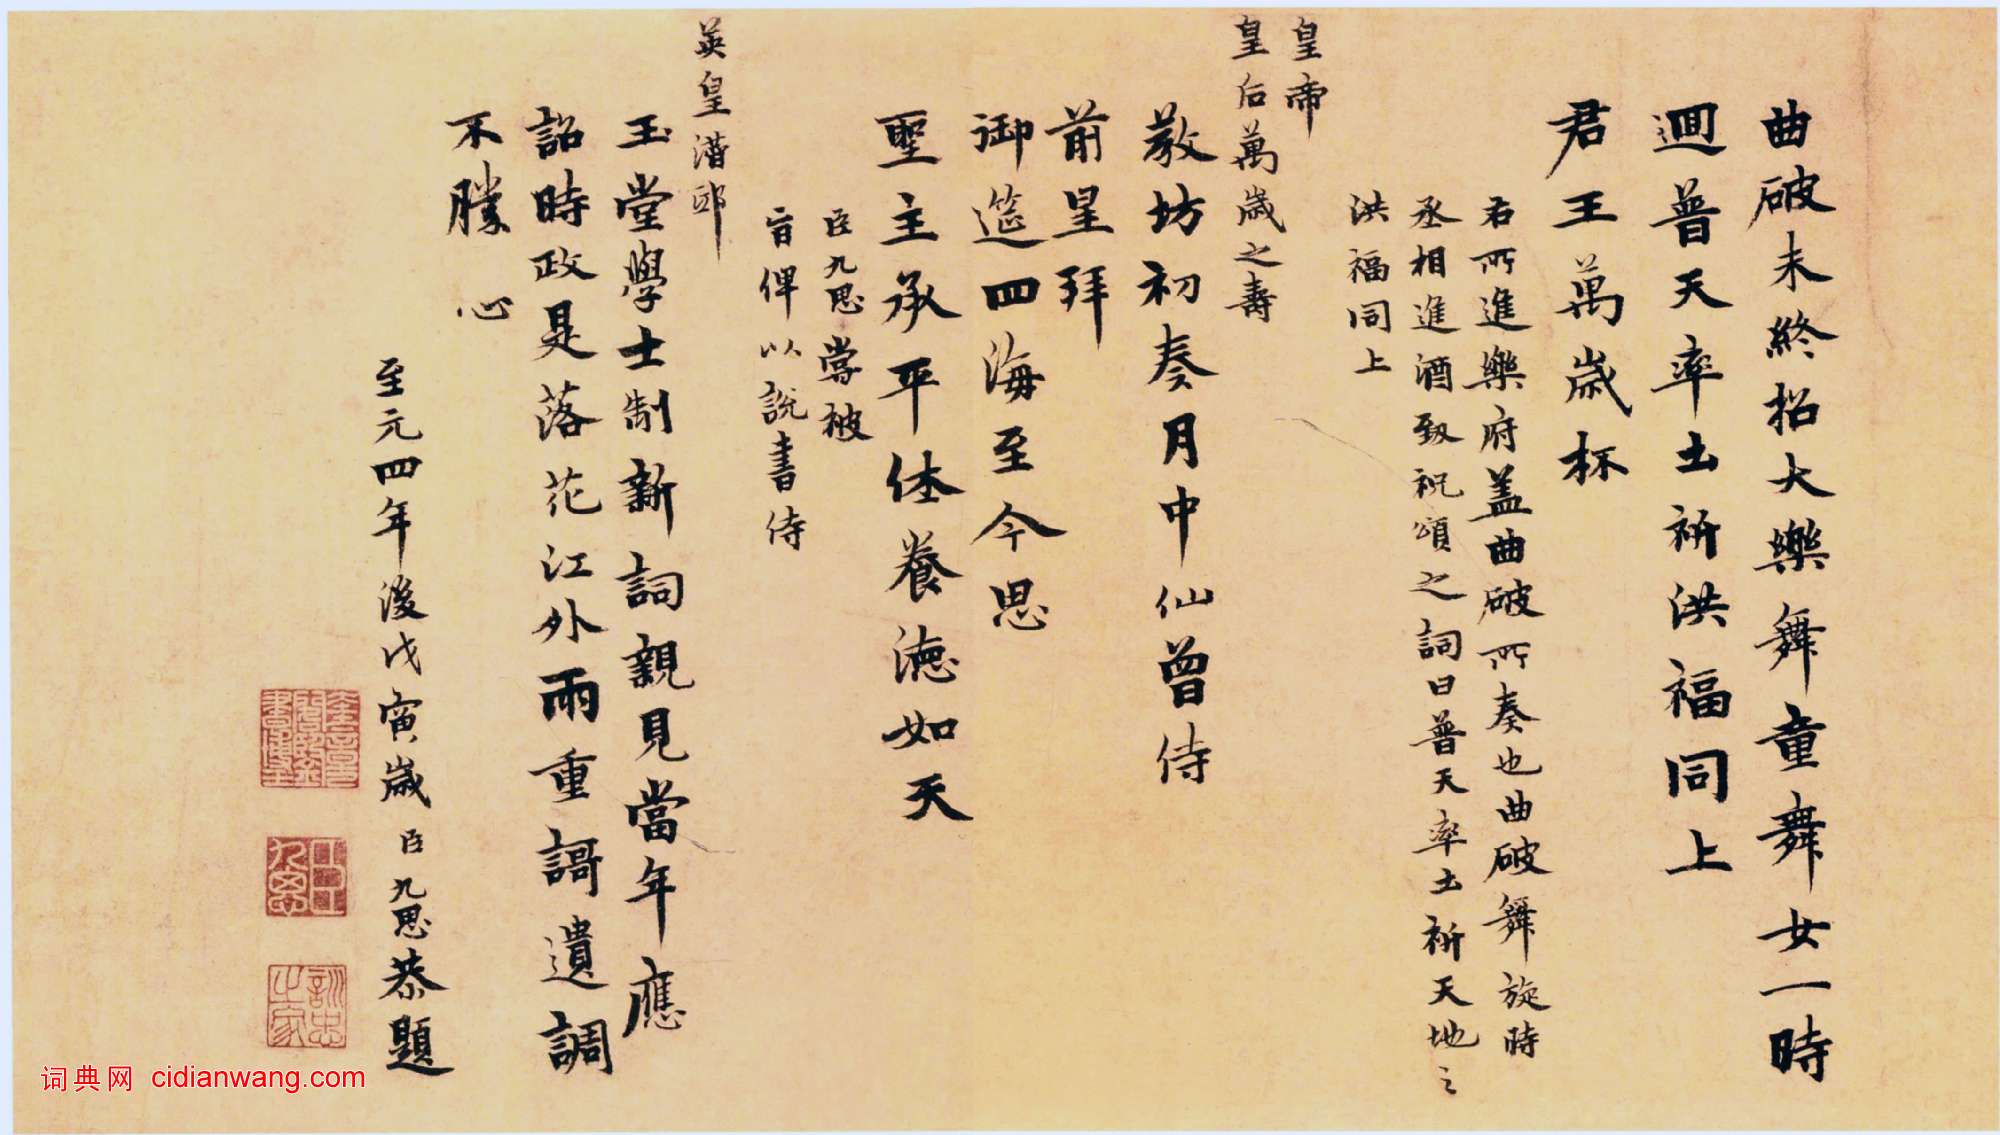 曲破未終招大樂舞童舞女一時
迴普天率土祈洪福同上
君王萬歲杯
右所進樂府蓋曲破所奏也曲破舞旋時
丞相進酒致祝頌之詞曰普天率土祈天地之
洪福同上
皇帝
皇后萬歲之壽
教坊初奏月中仙曾侍
前星拜
御筵四海至今思
聖主承平休養德如天
臣九思嘗被
旨俾以說書侍
英皇潛邸
玉堂學士制新詞親見當年應
詔時政是落花江外雨重謌遺調
不勝心
至元四年後戊寅歲臣九思恭題
訓忠之家
词典网 cidianwang.com